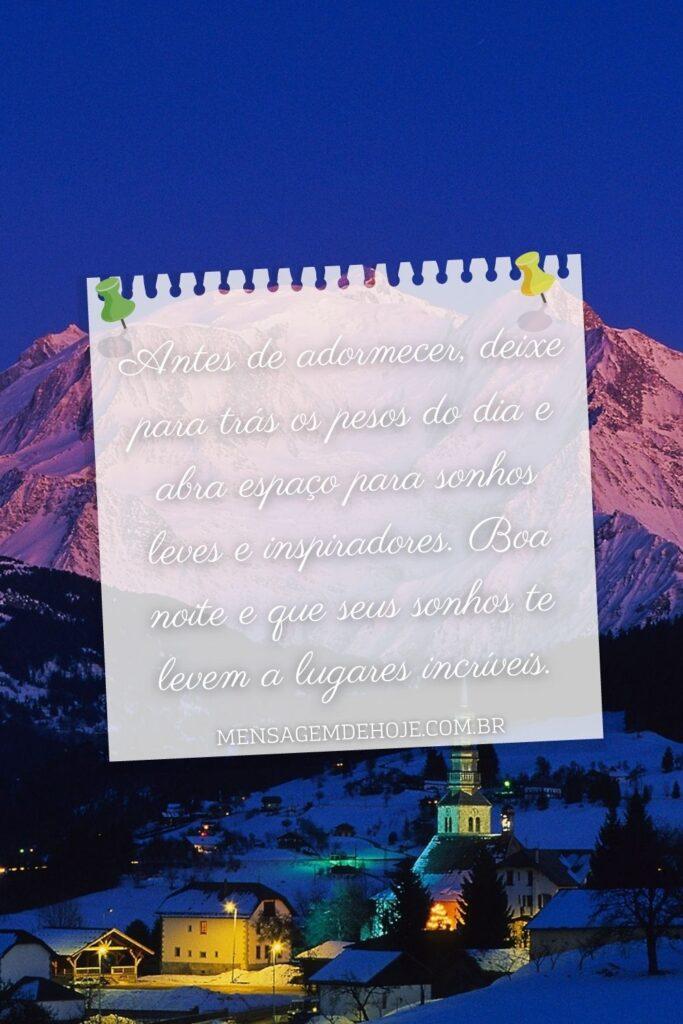 Antes de adormecer, deixe
para trás os pesos do dia e
abra espaço para sonhos
leves e inspiradores. Boa
noite e que seus sonhos te
levem a lugares incríveis.
MENSAGEMDEHOJE.COM.BR